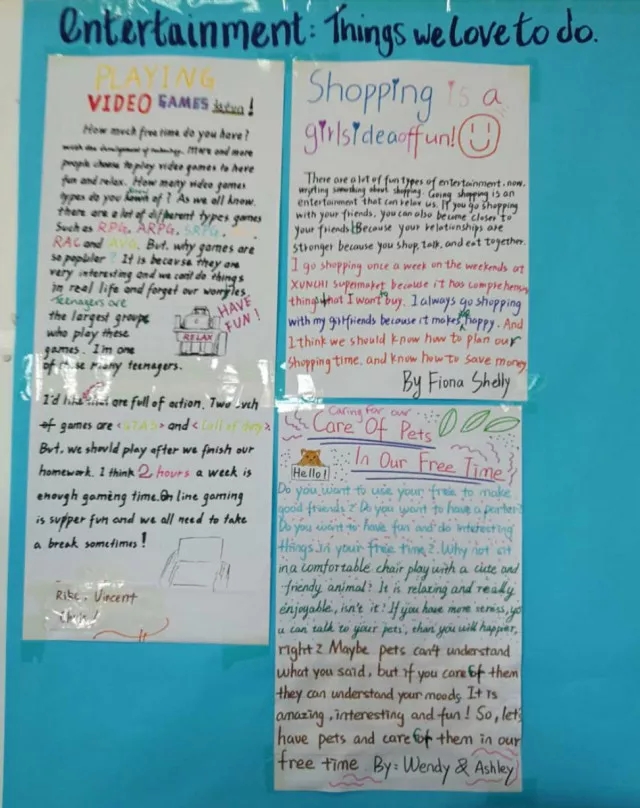 entertainment: Things we love to do.
PLAYING
VIDEO GAMES is fun!
How much free time do you have?
with the development of technology. More and more
people choose to play video games to have
fun and relax. How many video games
types do you of? As we all know.
there are a lot of different types games
such as RPG, ARPG, SRPG,
RAC and AVG. But. why games are
so popular? It is because they are
very interesting and we can't do things
in real life and forget our worries.
Teenagers are
the largest groups
who play these
games. I'm one
of these many teenagers.
HAVE
FUN!
RELAX
I'd like that are full of action. Two such
of games are <GTA5> and <Call of duty>
But. we should play after we finish our
homework. I think 2 hours a week is
enough gameing time. On line gaming
is supper fun and we all need to take
a break sometimes!
Rike, Vincent
Shopping is a
girlsideaoffun!
There are a lot of fun types of entertainment. now.
something about shopping. Going shopping is an
entertainment that can relax us. If you go shopping
with your friends, you can also become closer to
your friends! Because your relationships are
stronger because you shop, talk, and eat together.
I go shopping once a week on the weekends at
XUNCHI supermarket because it has comprehensive
things that I want to buy. I always go shopping
with my girlfriends because it makes happy. And
I think we should know how to plan our
shopping time, and know how to save money
By Fiona Shelly
Caring for our
Care Of Pets
In Our Free Time
Hello!
Do you want to use your free to make
good friends? Do you want to have a parter?
Do you want to have fun and do interesting
things in your free time? Why not sit
in a comfortable chair play with a cute and
friendy animal? It is relaxing and really
enjoyable, isn't it? If you have more stress, yo
u can talk to your pets, than you will happier,
right? Maybe pets can't understand
what you said, but if you care of them
they can understand your moods. It is
amazing, interesting and fun! So, let's
have pets and care of them in our
free time. By: Wendy & Ashley